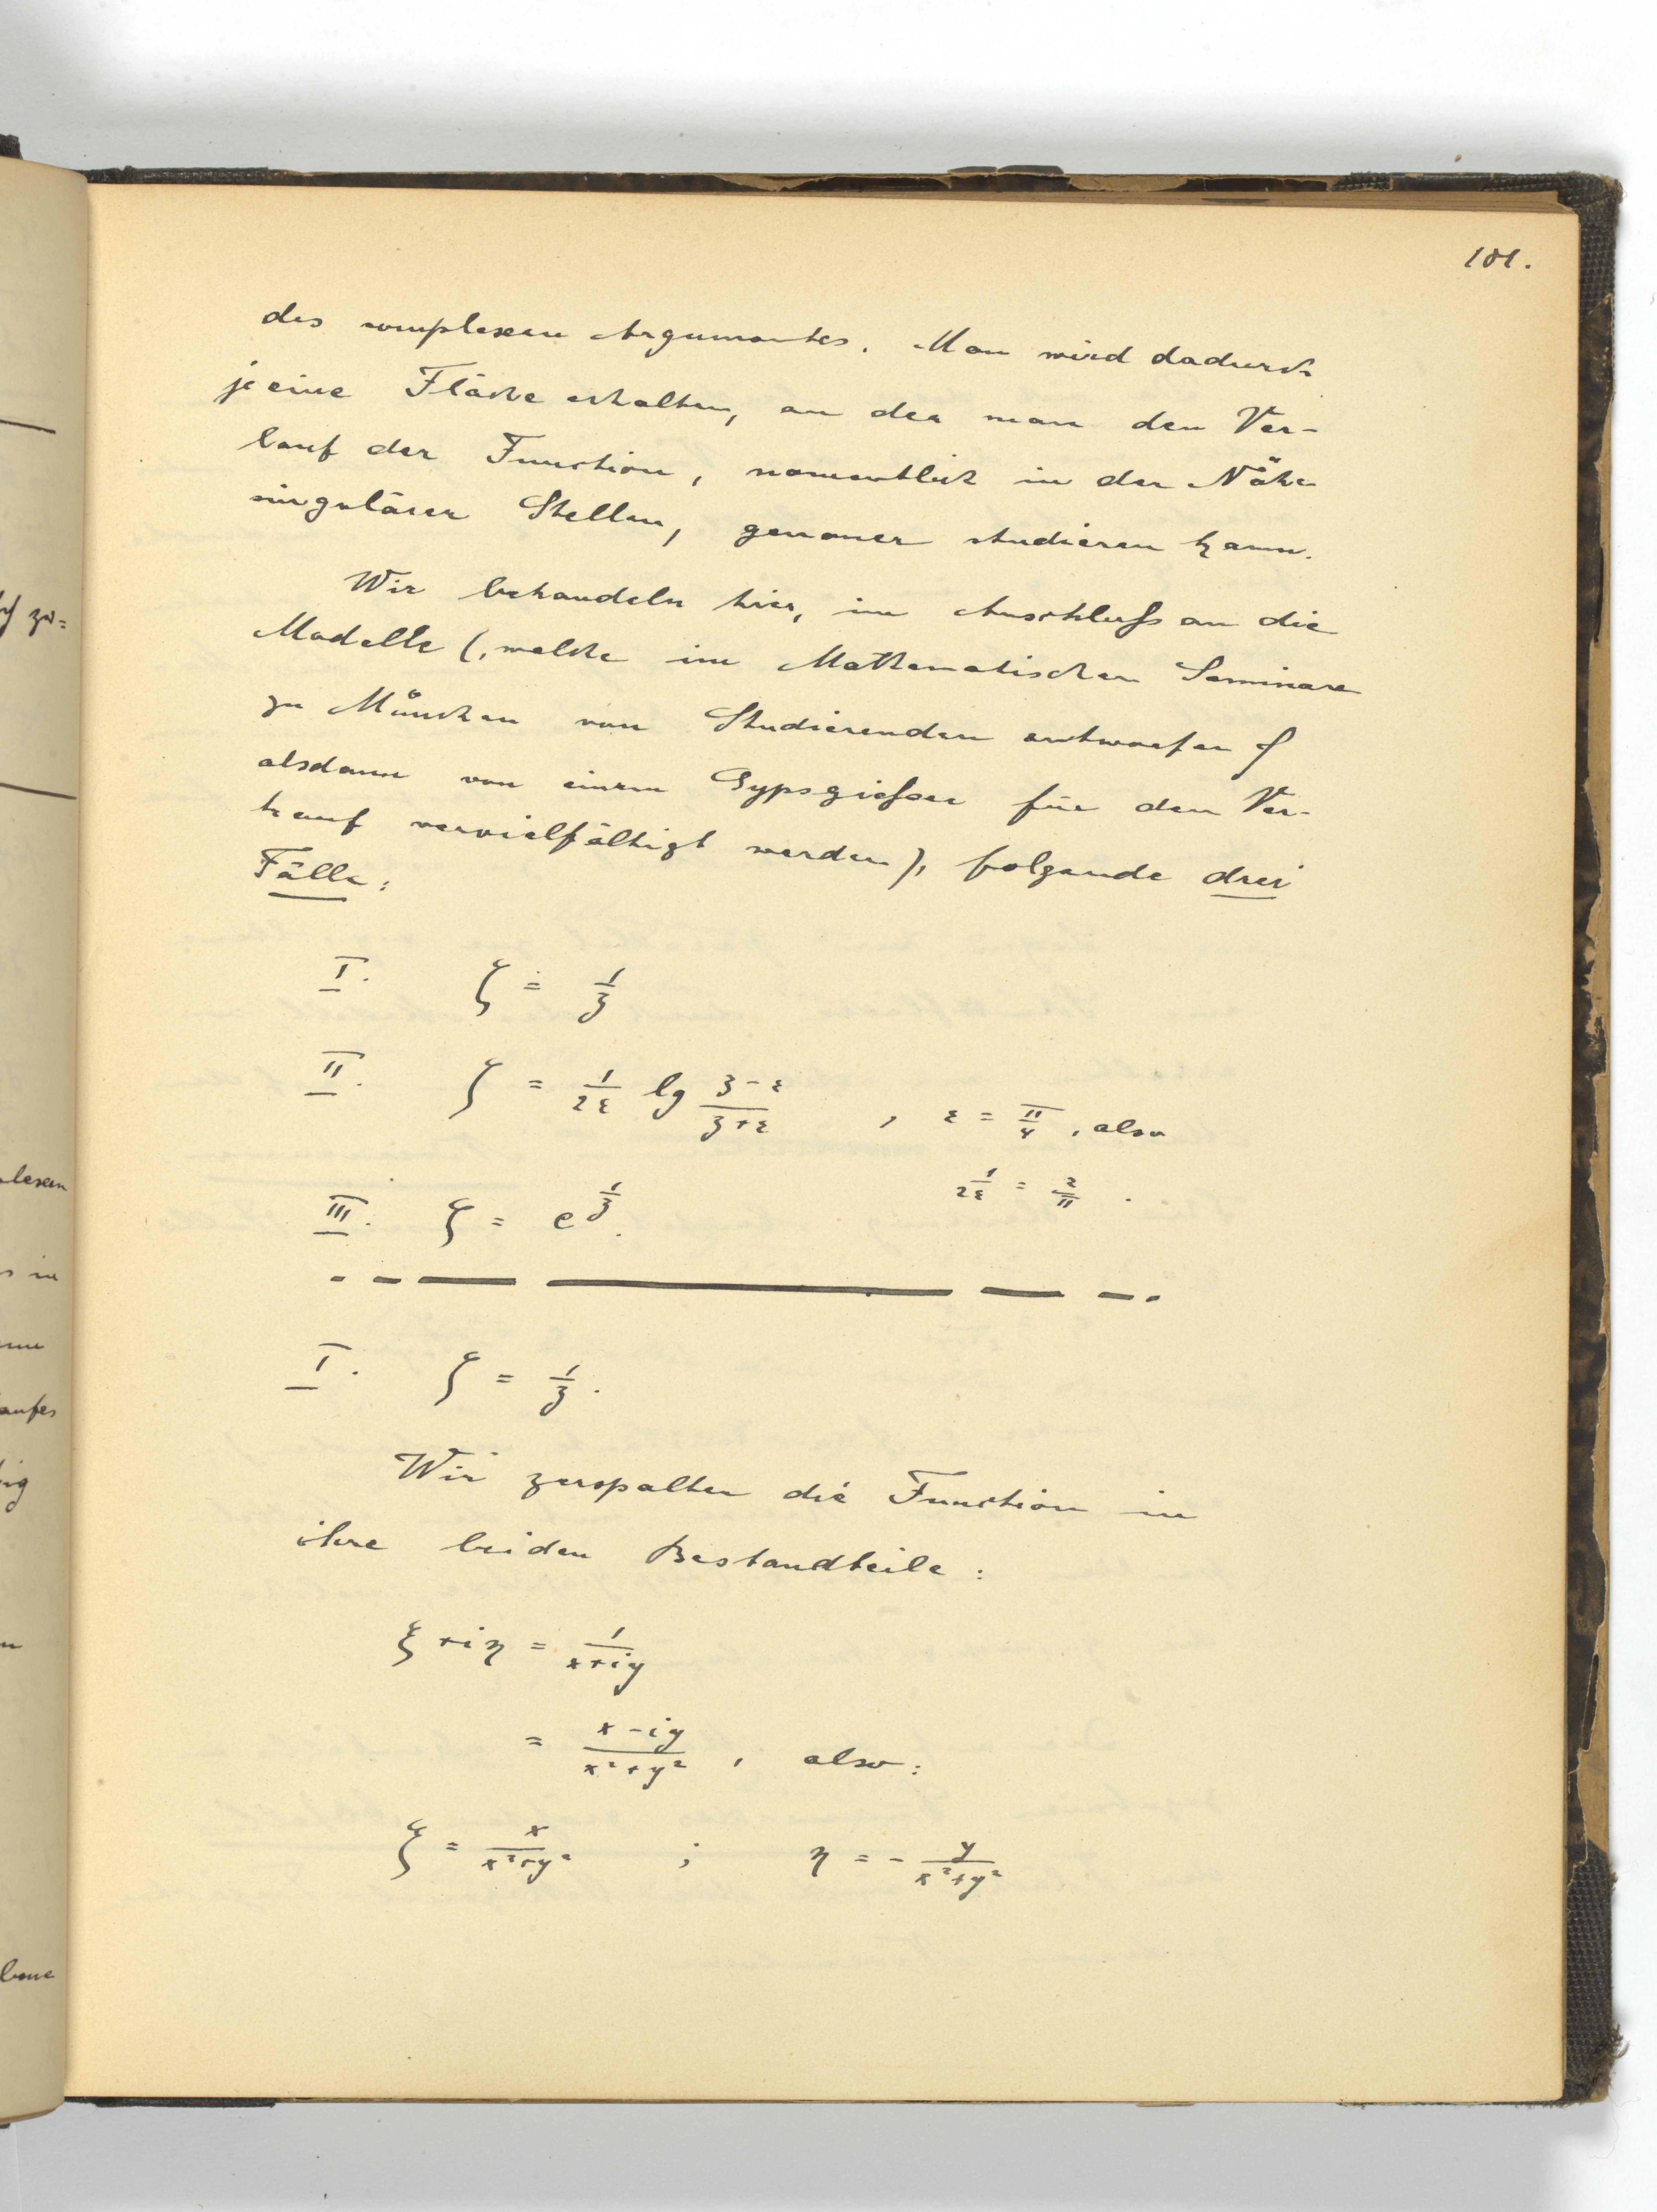 101.
des complexen Argumentes. Man wird dadurch
je eine Fläche erhalten, an der man den Ver-
lauf der Function, namentlich in der Nähe
singulärer Stellen, genauer studieren kann.
Wir behandeln hier, im Anschluß an die
Modelle (, welche im Mathematischen Seminare
zu München von Studierenden entworfen &
alsdann von einem Gypsgießer für den Ver-
kauf vervielfältigt werden), folgende drei
Fälle:
I. ζ = 1/z
II. ζ = 1/2ε lg (z-ε)/(z+ε) , ε = π/4, also
1/2ε = 2/π .
III. ζ = e^(1/z).
I. ζ = 1/z.
Wir zerspalten die Function in
ihre beiden Bestandteile:
ξ + iη = 1/(x+iy)
= (x-iy)/(x²+y²) , also:
ξ = x/(x²+y²) ; η = - y/(x²+y²)
zu=
lexen
s in
aufes
ig